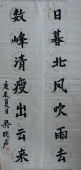 日暮北风吹雨去
数峰清瘦出云来
庚子夏日